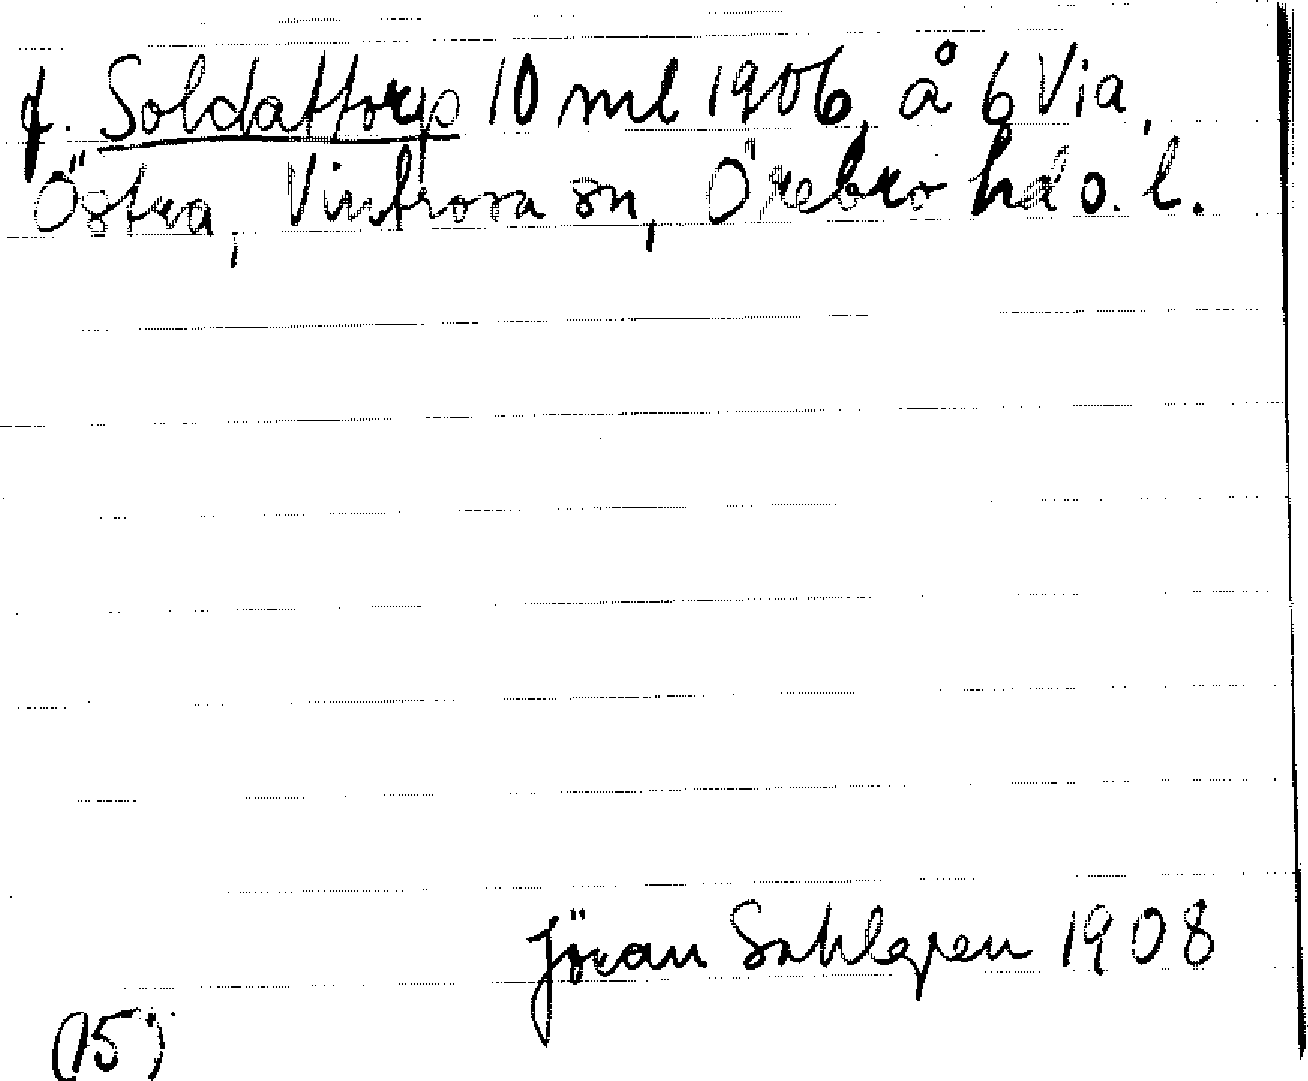 f. Soldattorp 10 ml 1906, å 6 Via,
Östra, Vintrosa sn, Örebro hd o. l.
Jöran Sahlgren 1908
(15)